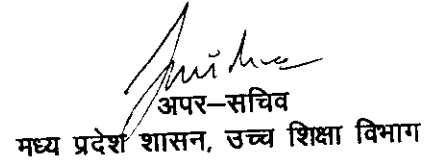 अपर–सचिव
मध्य प्रदेश शासन, उच्च शिक्षा विभाग